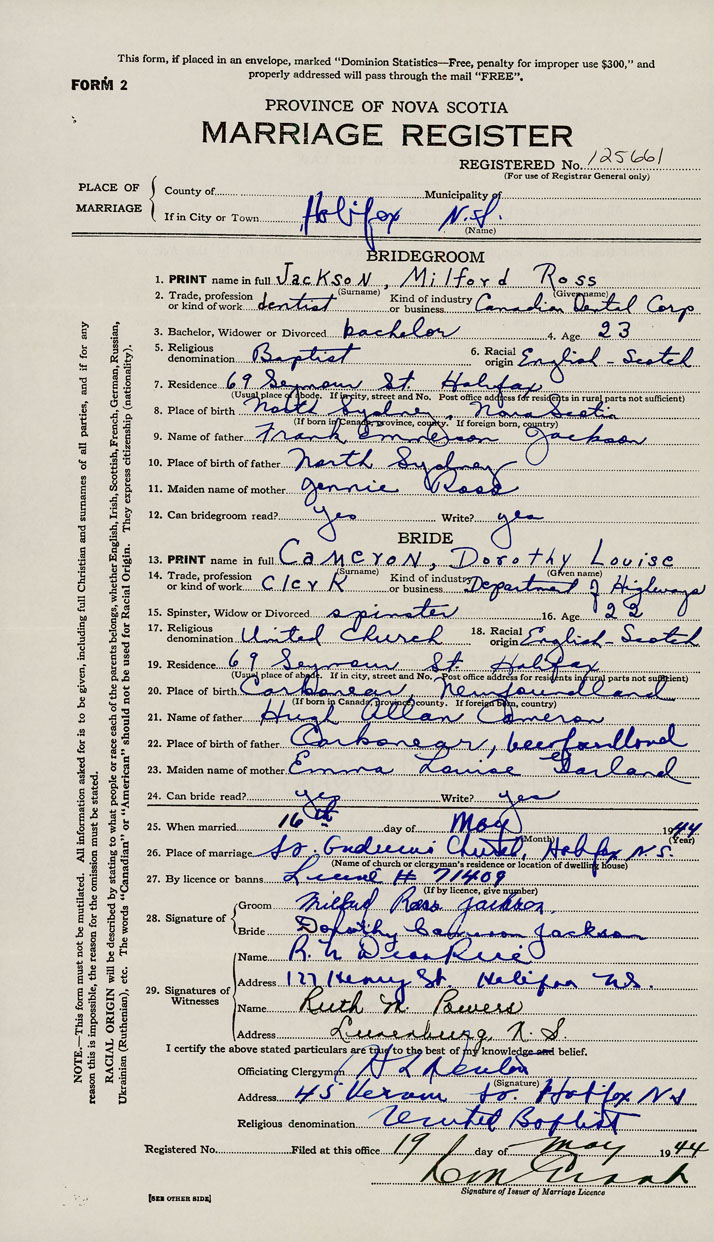 This form, if placed in an envelope, marked "Dominion Statistics—Free, penalty for improper use $300," and
properly addressed will pass through the mail "FREE".
FORM 2
PROVINCE OF NOVA SCOTIA
MARRIAGE REGISTER
REGISTERED No. 125661
(For use of Registrar General only)
PLACE OF MARRIAGE
County of Municipality of
If in City or Town Halifax N.S.
(Name)
BRIDEGROOM
1. PRINT name in full Jackson, Milford Ross
(Surname) (Given name)
2. Trade, profession or kind of work dentist Kind of industry or business Canadian Dental Corp
3. Bachelor, Widower or Divorced bachelor 4. Age 23
5. Religious denomination Baptist 6. Racial origin English - Scotch
7. Residence 69 Seymour St. Halifax
(Usual place of abode. If in city, street and No. Post office address for residents in rural parts not sufficient)
8. Place of birth North Sydney, Nova Scotia
(If born in Canada, province, county. If foreign born, country)
9. Name of father Frank Emmerson Jackson
10. Place of birth of father North Sydney
11. Maiden name of mother Jennie Ross
12. Can bridegroom read? yes Write? yes
BRIDE
13. PRINT name in full Cameron, Dorothy Louise
(Surname) (Given name)
14. Trade, profession or kind of work clerk Kind of industry or business Department of Highways
15. Spinster, Widow or Divorced spinster 16. Age 22
17. Religious denomination United Church 18. Racial origin English-Scotch
19. Residence 69 Seymour St Halifax
(Usual place of abode. If in city, street and No. Post office address for residents in rural parts not sufficient)
20. Place of birth Carbonear, Newfoundland
(If born in Canada, province, county. If foreign born, country)
21. Name of father Hugh Allan Cameron
22. Place of birth of father Carbonear, Newfoundland
23. Maiden name of mother Emma Louise Garland
24. Can bride read? yes Write? yes
25. When married 16th day of May 1944
(Month) (Year)
26. Place of marriage Church, Halifax N.S.
(Name of church or clergyman's residence or location of dwelling house)
27. By licence or banns License # 71409
(If by licence, give number)
28. Signature of
Groom Milford Ross Jackson
Bride Dorothy Cameron Jackson
29. Signatures of Witnesses
Name R. N.
Address 127 Henry St. Halifax N.S.
Name Ruth M. Powers
Address Lunenburg, N.S.
I certify the above stated particulars are true to the best of my knowledge and belief.
Officiating Clergyman
(Signature)
Address 45 St. Halifax N S
Religious denomination United Baptist
Registered No. Filed at this office 19 day of May 1944
Signature of Issuer of Marriage Licence
[SEE OTHER SIDE]
NOTE.—This form must not be mutilated. All information asked for is to be given, including full Christian and surnames of all parties, and if for any
reason this is impossible, the reason for the omission must be stated.
RACIAL ORIGIN will be described by stating to what people or race each of the parents belongs, whether English, Irish, Scottish, French, German, Russian,
Ukrainian (Ruthenian), etc. The words "Canadian" or "American" should not be used for Racial Origin. They express citizenship (nationality).